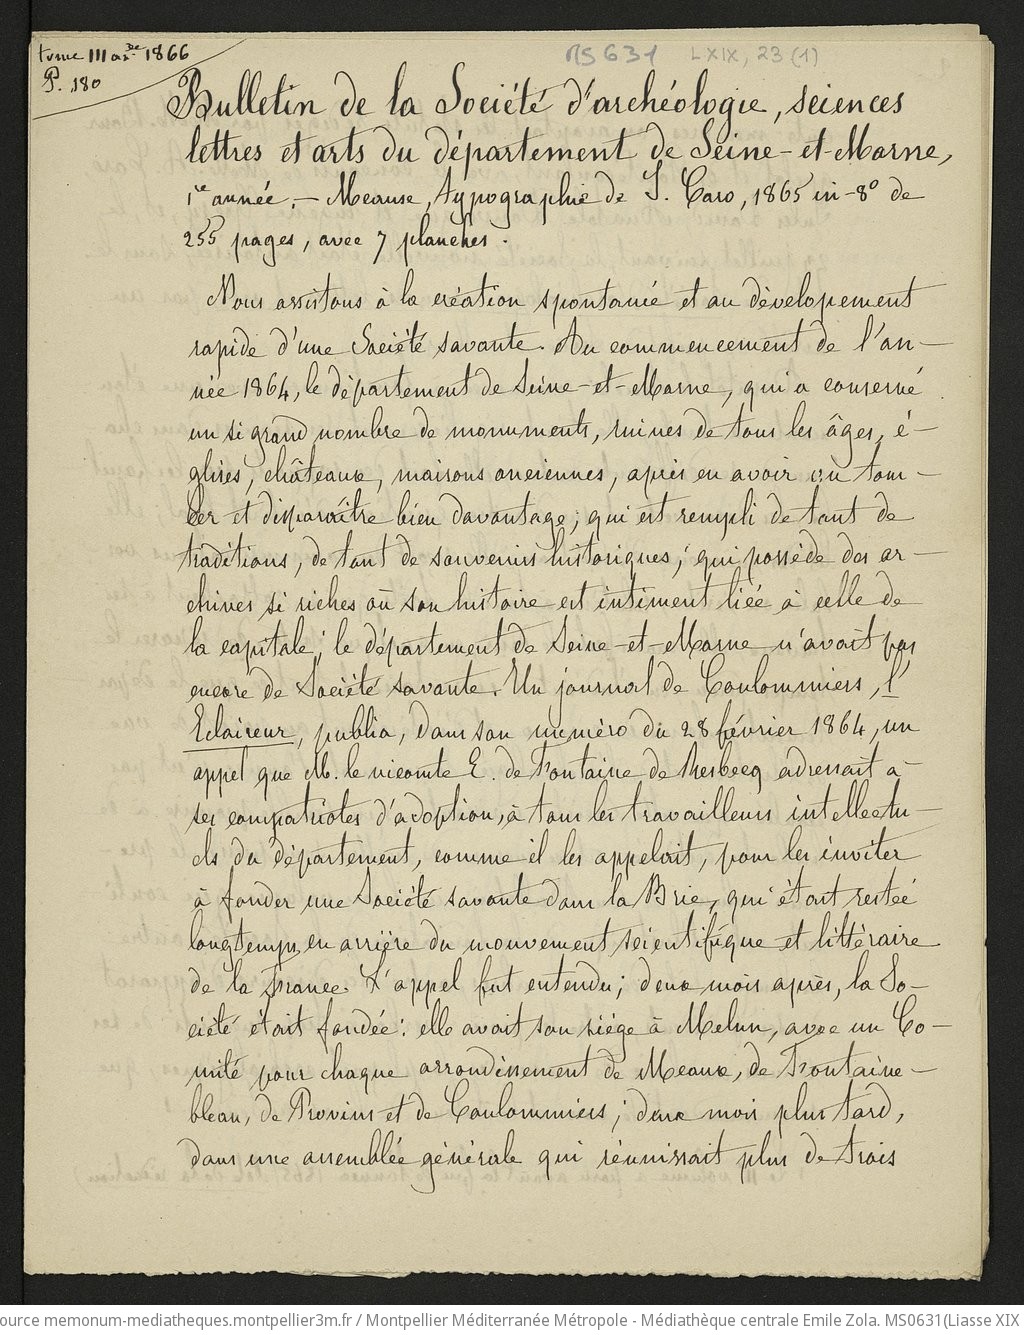 tome III an. 1866
P. 180
MS 631 LXIX, 23 (1)
Bulletin de la Société d'archéologie, sciences
lettres et arts du département de Seine-et-Marne,
1re année, — Meause, typographie de J. Caro, 1865 in-8° de
255 pages, avec 7 planches.
Nous assistons à la création spontanée et au dévelopement
rapide d'une Société savante. Au commencement de l'an-
née 1864, le département de Seine-et-Marne, qui a conservé
un si grand nombre de monuments, ruines de tous les âges, é-
glises, châteaux, maisons anciennes, après en avoir vu tom-
ber et disparaître bien davantage; qui est rempli de tant de
traditions, de tant de souvenirs historiques; qui possède des ar-
chives si riches où son histoire est intiment liée à celle de
la capitale; le département de Seine-et-Marne n'avait pas
encore de Société savante. Un journal de Coulommiers, l'
Eclaireur, publia, dans son numéro du 28 février 1864, un
appel que M. le vicomte E. de Fontaine de Resbecq adressait à
ses compatriotes d'adoption, à tous les travailleurs intellectu-
els du département, comme il les appelait, pour les inviter
à fonder une Société savante dans la Brie, qui était restée
longtemps en arrière du mouvement scientifique et littéraire
de la France. L'appel fut entendu; deux mois après, la So-
ciété était fondée: elle avait son siége à Melun, avec un Co-
mité pour chaque arrondissement de Meaux, de Fontaine-
bleau, de Provins et de Coulommiers; deux mois plus tard,
dans une assemblée générale qui réunissait plus de trois
ource memonum-mediatheques.montpellier3m.fr / Montpellier Méditerranée Métropole - Médiathèque centrale Emile Zola. MS0631(Liasse XIX